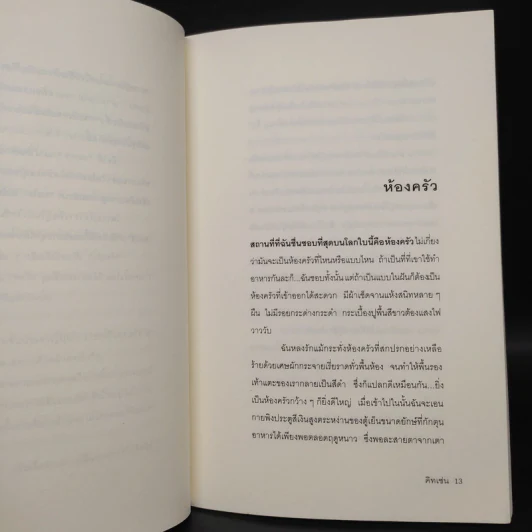 ห้องครัว
สถานที่ที่ฉันชื่นชอบที่สุดบนโลกใบนี้คือห้องครัว ไม่เกี่ยง
ว่ามันจะเป็นห้องครัวที่ไหนหรือแบบไหน ถ้าเป็นที่ที่เขาใช้ทำ
อาหารกันละก็...ฉันชอบทั้งนั้น แต่ถ้าเป็นแบบในฝันก็ต้องเป็น
ห้องครัวที่เข้าออกได้สะดวก มีผ้าเช็ดจานแห้งสนิทหลาย ๆ
ผืน ไม่มีรอยกระด่างกระดำ กระเบื้องปูพื้นสีขาวต้องแสงไฟ
วาววับ
ฉันหลงรักแม้กระทั่งห้องครัวที่สกปรกอย่างเหลือ
ร้ายด้วยเศษผักกระจายเรี่ยราดทั่วพื้นห้อง จนทำให้พื้นรอง
เท้าแตะของเรากลายเป็นสีดำ ซึ่งก็แปลกดีเหมือนกัน...ยิ่ง
เป็นห้องครัวกว้าง ๆ ก็ยิ่งดีใหญ่ เมื่อเข้าไปในนั้นฉันจะเอน
กายพิงประตูสีเงินสูงตระหง่านของตู้เย็นขนาดยักษ์ที่กักตุน
อาหารได้เพียงพอตลอดฤดูหนาว ซึ่งพอละสายตาจากเตา
คิทเช่น 13